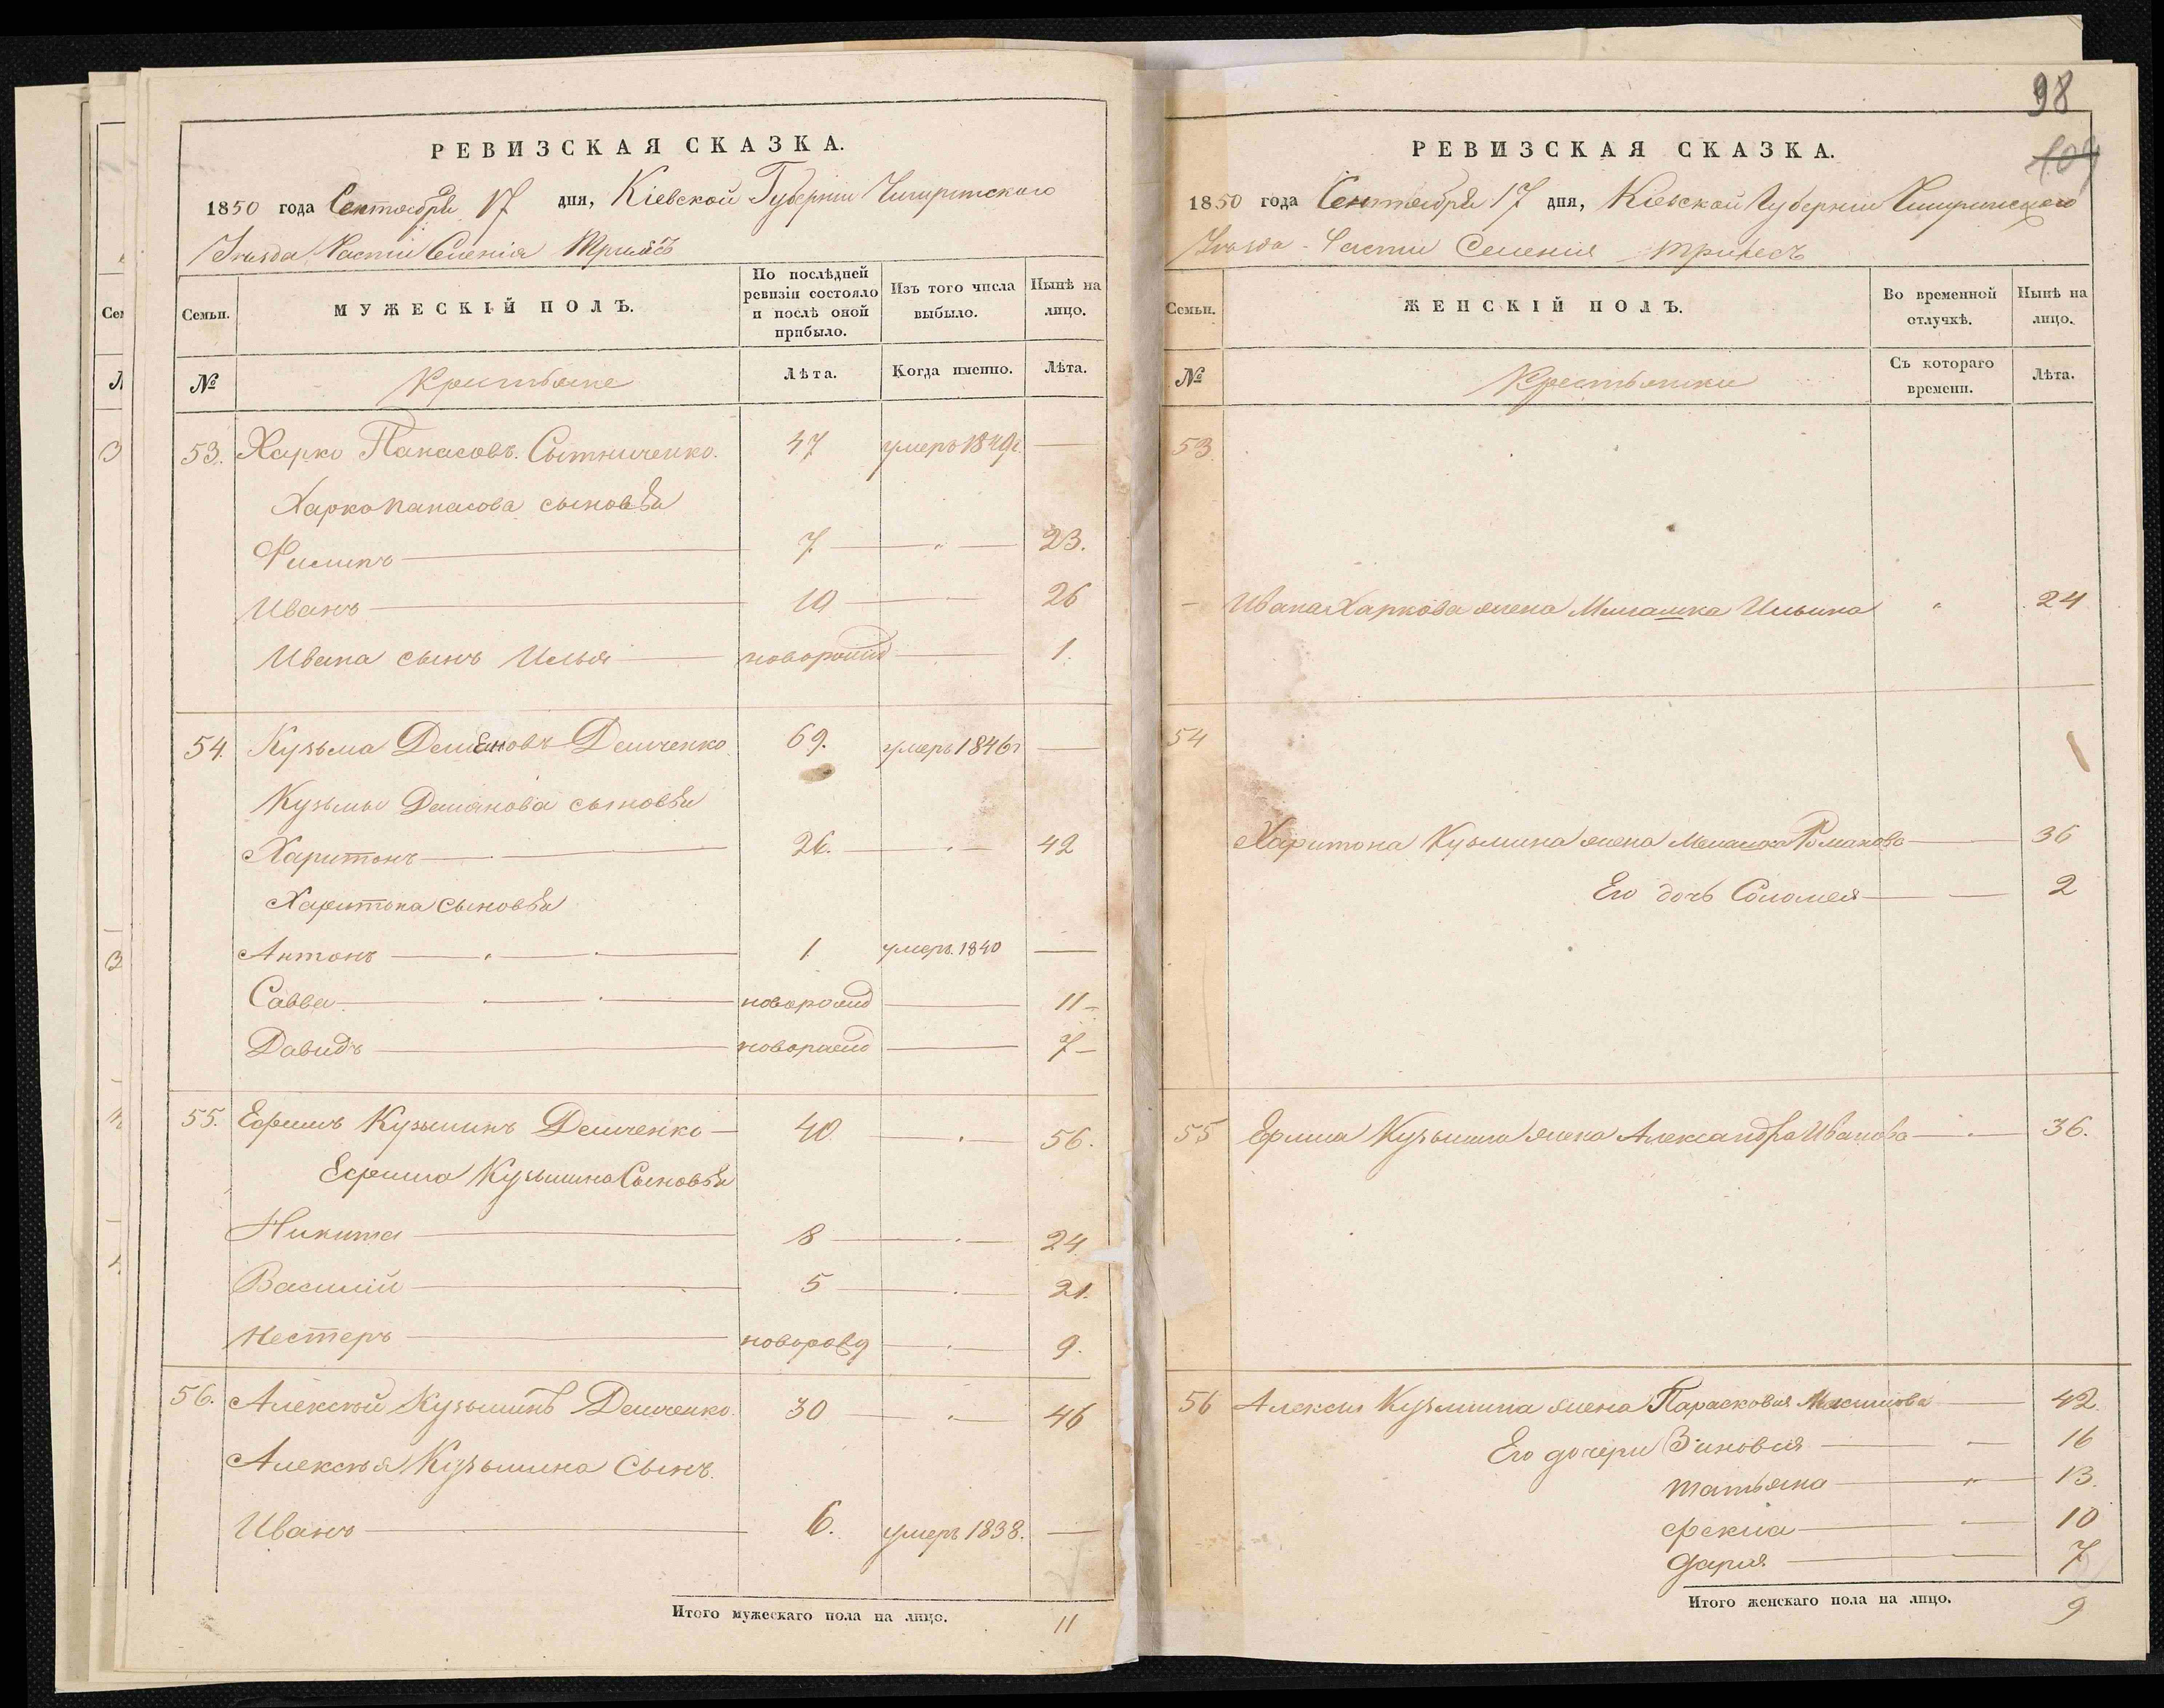 РЕВИЗСКАЯ СКАЗКА.
1850 года Сентября 17 дня, Кіевской Губерніи Чигиринскаго
Уѣзда Части Селенія Трилѣсъ
Семьи.
МУЖЕСКІЙ ПОЛЪ.
По послѣдней ревизіи состояло и послѣ оной прибыло.
Изъ того числа выбыло.
Нынѣ на лицо.
№
Крестьяне
Лѣта.
Когда именно.
Лѣта.
53. Харко Панасовъ Сытниченко. 47 умеръ 1849г. —
Харко Панасова сыновья
Филипъ 7 23.
Иванъ 10 26
Ивана сынъ Илья новорожд 1.
54. Кузьма Демяновъ Демченко 69. умеръ 1846г —
Кузьмы Демянова сыновья
Харитонъ 26. 42
Харитона сыновья
Антонъ 1 умеръ. 1840 —
Савва новорожд 11
Давидъ новорожд 7
55. Ефимъ Кузьминъ Демченко 40 56.
Ефима Кузьмина Сыновья
Никита 8 24.
Василій 5 21.
Нестеръ новорожд 9.
56. Алексѣй Кузьминъ Демченко. 30 46
Алексѣя Кузьмина Сынъ.
Иванъ 6. умеръ 1838. —
Итого мужескаго пола на лицо. 11
98
109
РЕВИЗСКАЯ СКАЗКА.
1850 года Сентября 17 дня, Кіевской Губерніи Чигиринскаго
Уѣзда Части Селенія Трилесъ
Семьи.
ЖЕНСКІЙ ПОЛЪ.
Во временной отлучкѣ.
Нынѣ на лицо.
№
Крестьянки
Съ котораго времени.
Лѣта.
53
Ивана Харкова жена Милашка Ильина 24
54
Харитона Кузмина жена Меланка Романова 36
Его дочь Соломея 2
55 Ефима Кузьмина жена Александра Иванова 36.
56 Алексия Кузьмина жена Парасковия Масимова 42.
Его дочери Зиновия 16
Татьяна 13.
Фекла 10
Дария 7
Итого женскаго пола на лицо.
9